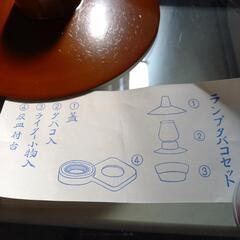 ランプタバコセット
①蓋
②タバコ入
③ライター小物入
④灰皿付台
①
②
③
④